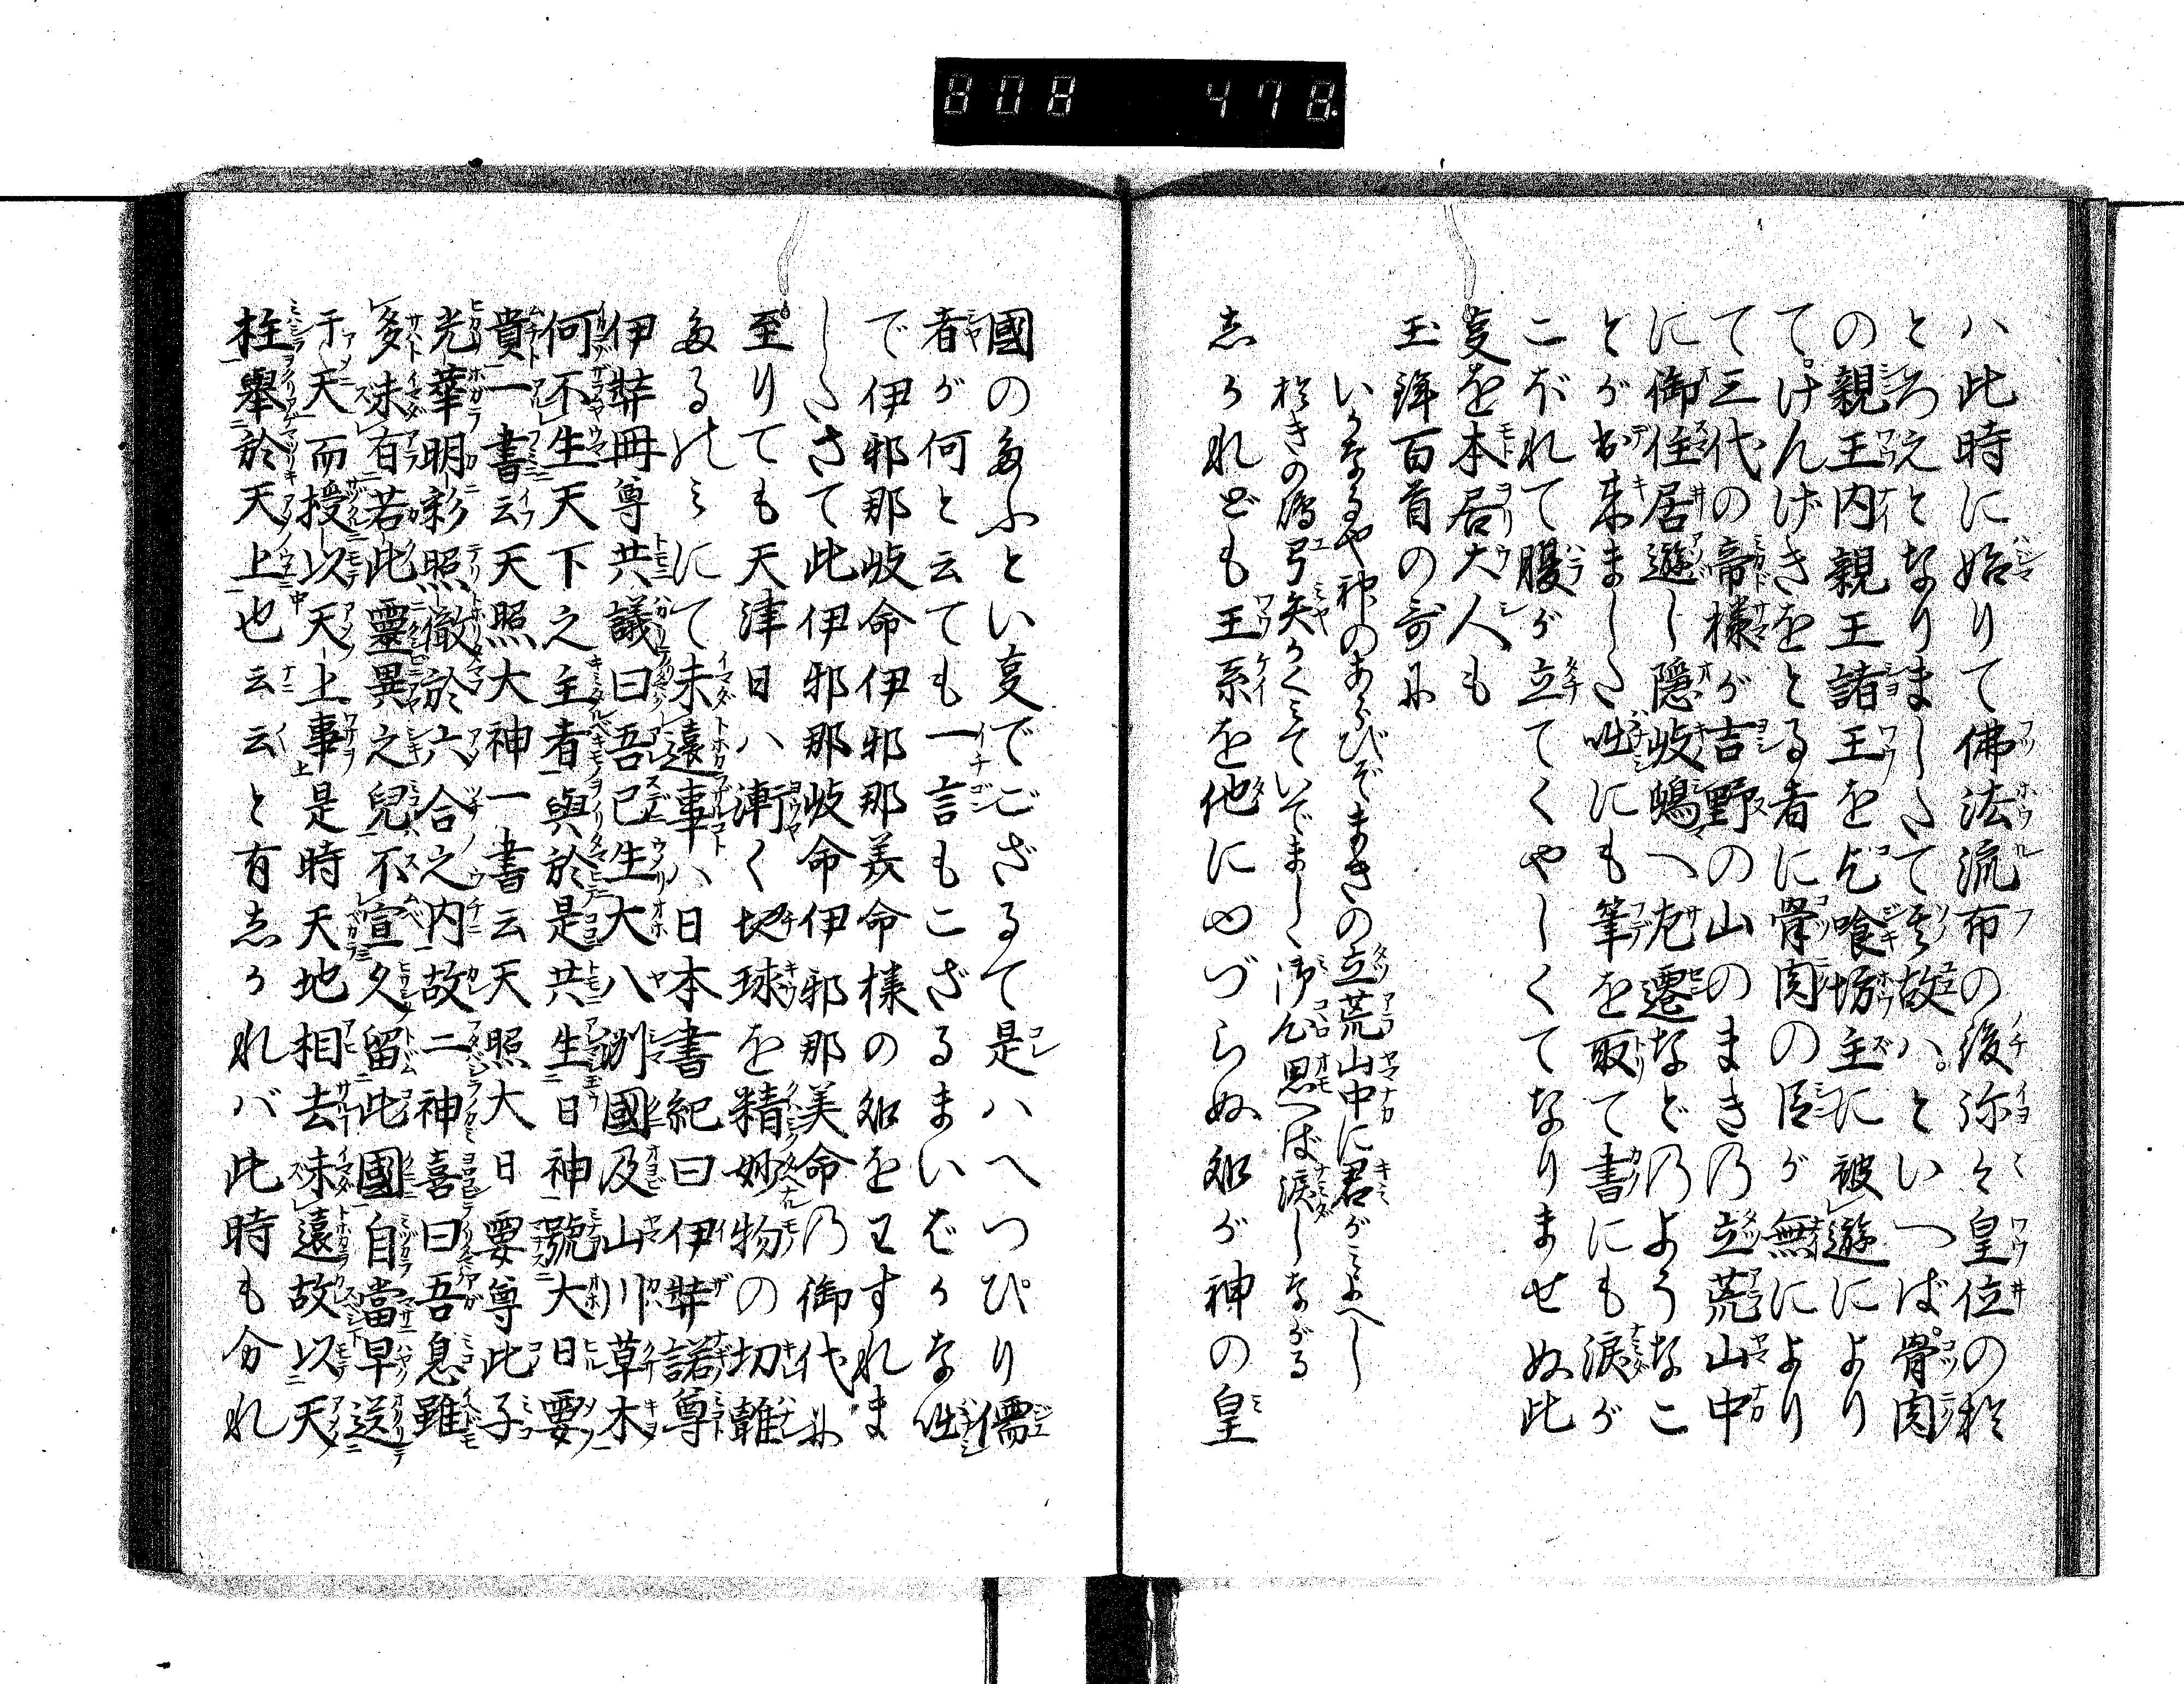 808 478
ハ此時に始りて佛法流布の後弥々皇位の於
とろえとなりましたて其故ハ。といつば骨肉
の親王内親王諸王を乞喰坊主に被遊により
て。けんげきをとる者に骨肉の臣が無により
て三代の帝様が吉野の山のまきの立荒山中
に御住居遊し隠岐嶋へ左遷などのようなこ
とが出来ました咄にも筆を取て書にも涙が
こぼれて腹が立てくやしくてなりませぬ此
変を本居大人も
玉鉾百首の哥に
いかなるや神のあらびぞまきの立荒山中に君がみよへし
於きの嶋弓矢かくみていでましゝ御心思へば涙しながる
志かれども王系を他にゆづらぬ処が神の皇
國の多ふとい変でござるて是ハへつぴり儒
者が何と云ても一言もこざるまいばかな咄
で伊邪那岐命伊邪那美命様の処をわすれま
した さて此伊邪那岐命伊邪那美命の御代に
至りても天津日ハ漸く地球を精妙物の切離
多るのミにて未遠事ハ日本書紀曰伊弉諾尊
伊弉冊尊共議曰吾已生大八洲國及山川草木
何不生天下之主者與於是共生日神號大日孁
貴一書云天照大神一書云天照大日孁尊此子
光華明彩照徹於六合之内故二神喜曰吾息雖
多未有若此靈異之兒不宣久留此國自當早送
于天而授以天上事是時天地相去未遠故以天
柱擧於天上也云云と有志かれバ此時も分れ